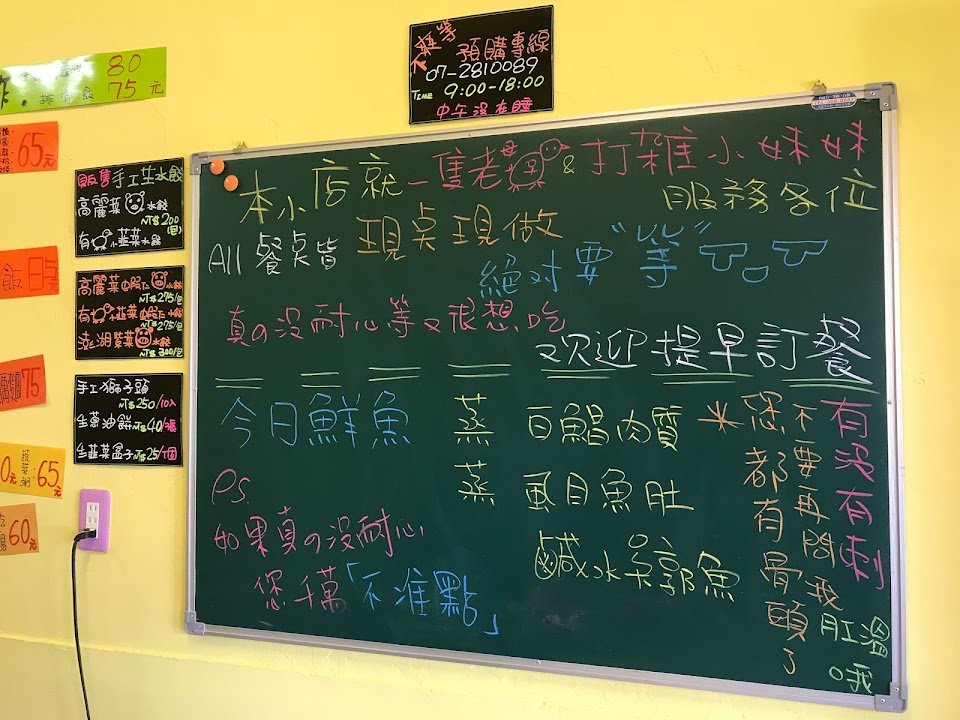 80
75元
65元
75
65元
60元
不想等
預購專線
07-2810089
TIME 9:00-18:00
中午沒在睡
販售手工生水餃
高麗菜水餃
NT$200(包)
有小韭菜水餃
高麗菜蝦仁水餃
NT$275/包
有小韭菜蝦仁水餃
NT$275/包
澎湖紫菜水餃
NT$300/包
手工獅子頭
NT$250/10入
生蔥油餅NT$40/張
生韭菜盒子NT$25/個
本小店就一隻老母&打雜小妹妹
服務各位
All 餐點皆現點現做
絕對要"等"
真の沒耐心等又很想吃
欢迎提早訂餐
今日鮮魚
蒸 白鯧肉質
蒸 虱目魚肚
鹹水午郭魚
Ps.
如果真の沒耐心
您千萬「不准點」
*您都有骨頭了
不要再問我
有沒有刺
肛溫哦